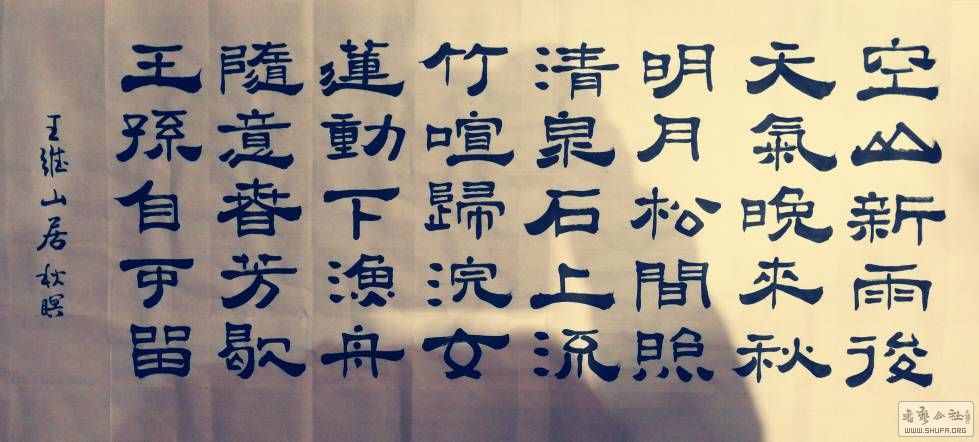 空山新雨後
天氣晚来秋
明月松間照
清泉石上流
竹喧歸浣女
蓮動下漁舟
隨意春芳歇
王孫自可留
王維山居秋暝
WWW.SHUFA.ORG